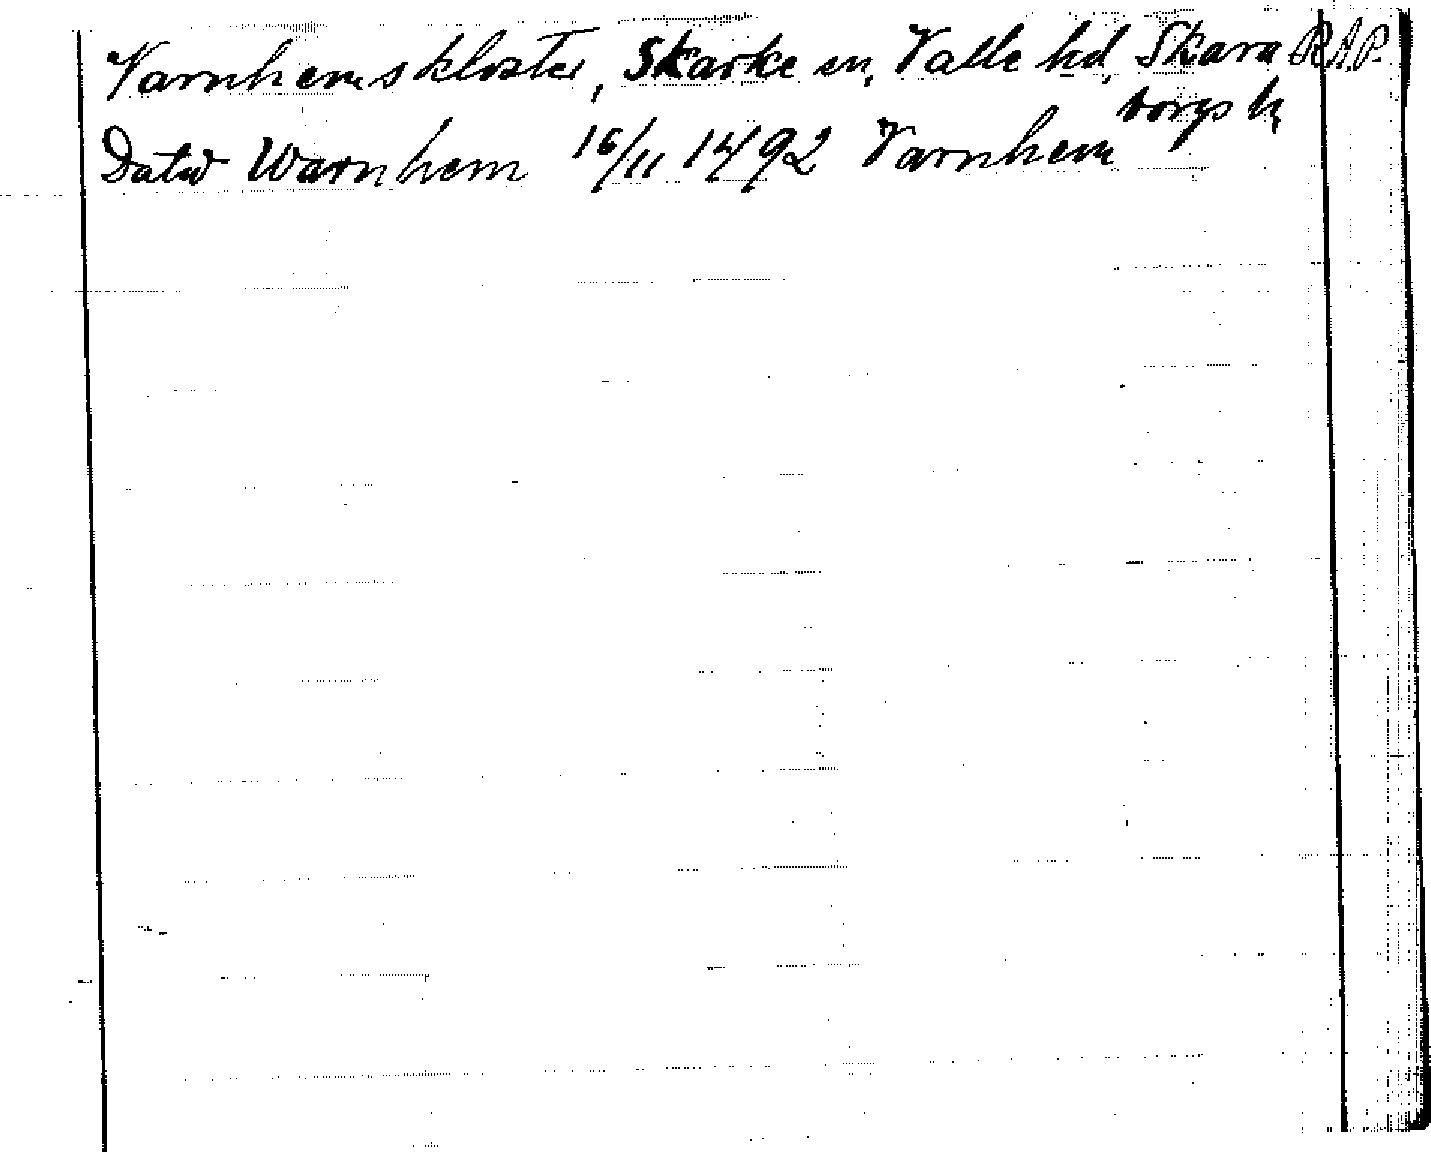 Varnhems kloster, Skarke sn, Valle hd, Skara R.A.P.
borgs l.
Datv Warnhem 16/11 1492 Varnhem